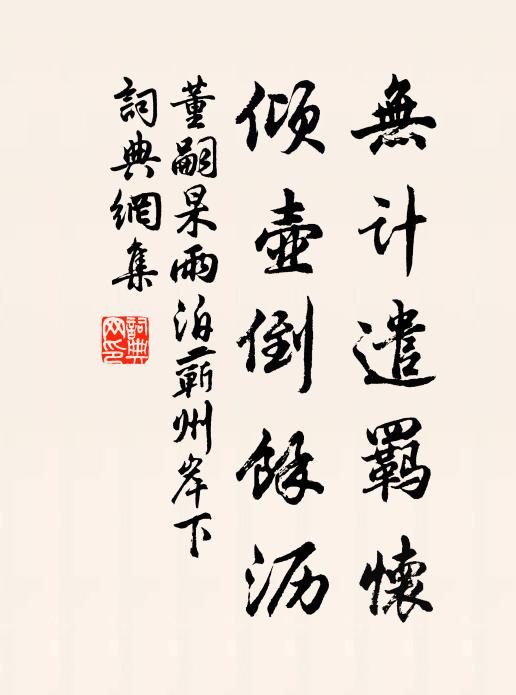 無计遣羁懷
倾壶倒餘沥
董嗣杲雨泊蕲州岸下
詞典網集
詞典网印